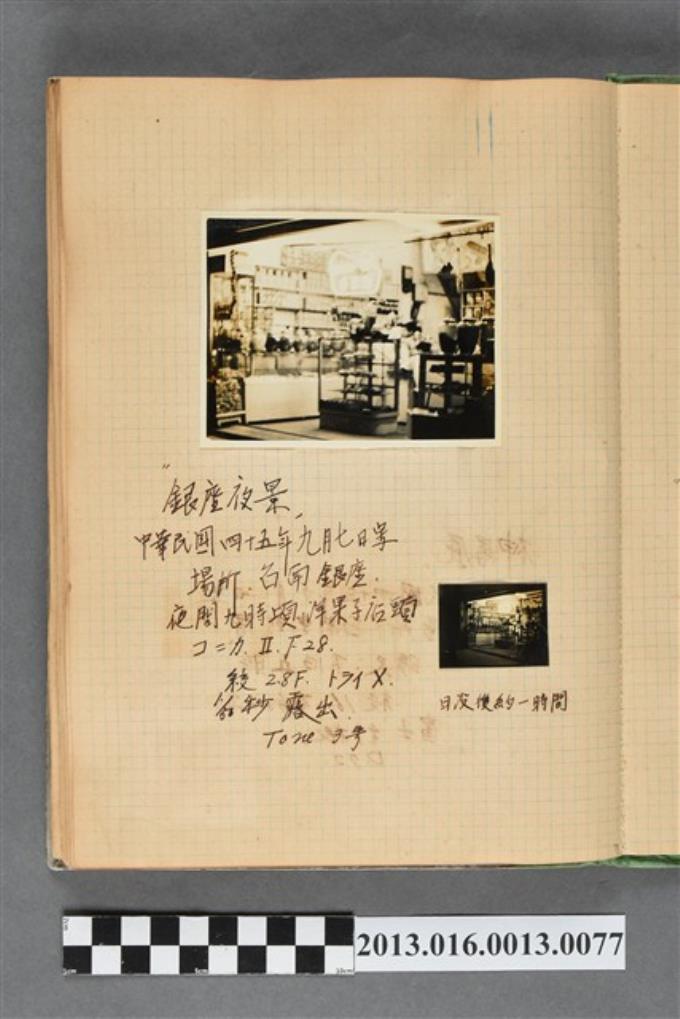 "銀座夜景"
中華民國四十五年九月七日写
場所 台南銀座.
夜間九時頃,洋果子店頭
コニカ.Ⅱ.F28.
絞 2.8F. トライX.
秒 露出.
Tone 3号
日没後約一時間
2013.016.0013.0077